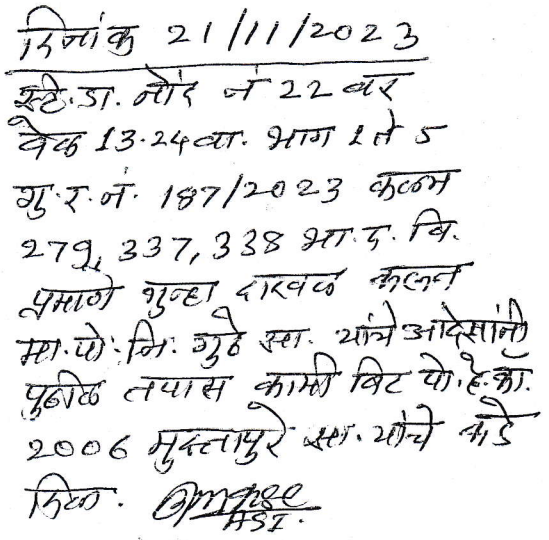 दिनांक 21/11/2023
स्टे. डा. नोंद नं 22 वर
वेळ 13.24 वा. भाग 1 ते 5
गु. र. नं. 187/2023 कलम
279, 337, 338 भा. द. वि.
प्रमाणे गुन्हा दाखल करून
मा. पो. नि. गुठे सा. यांचे आदेशांनी
पुढील तपास कामी बिट पो. हे. कॉ.
2006 मुस्तापुरे सा. यांचे कडे
दिला.
ASI.